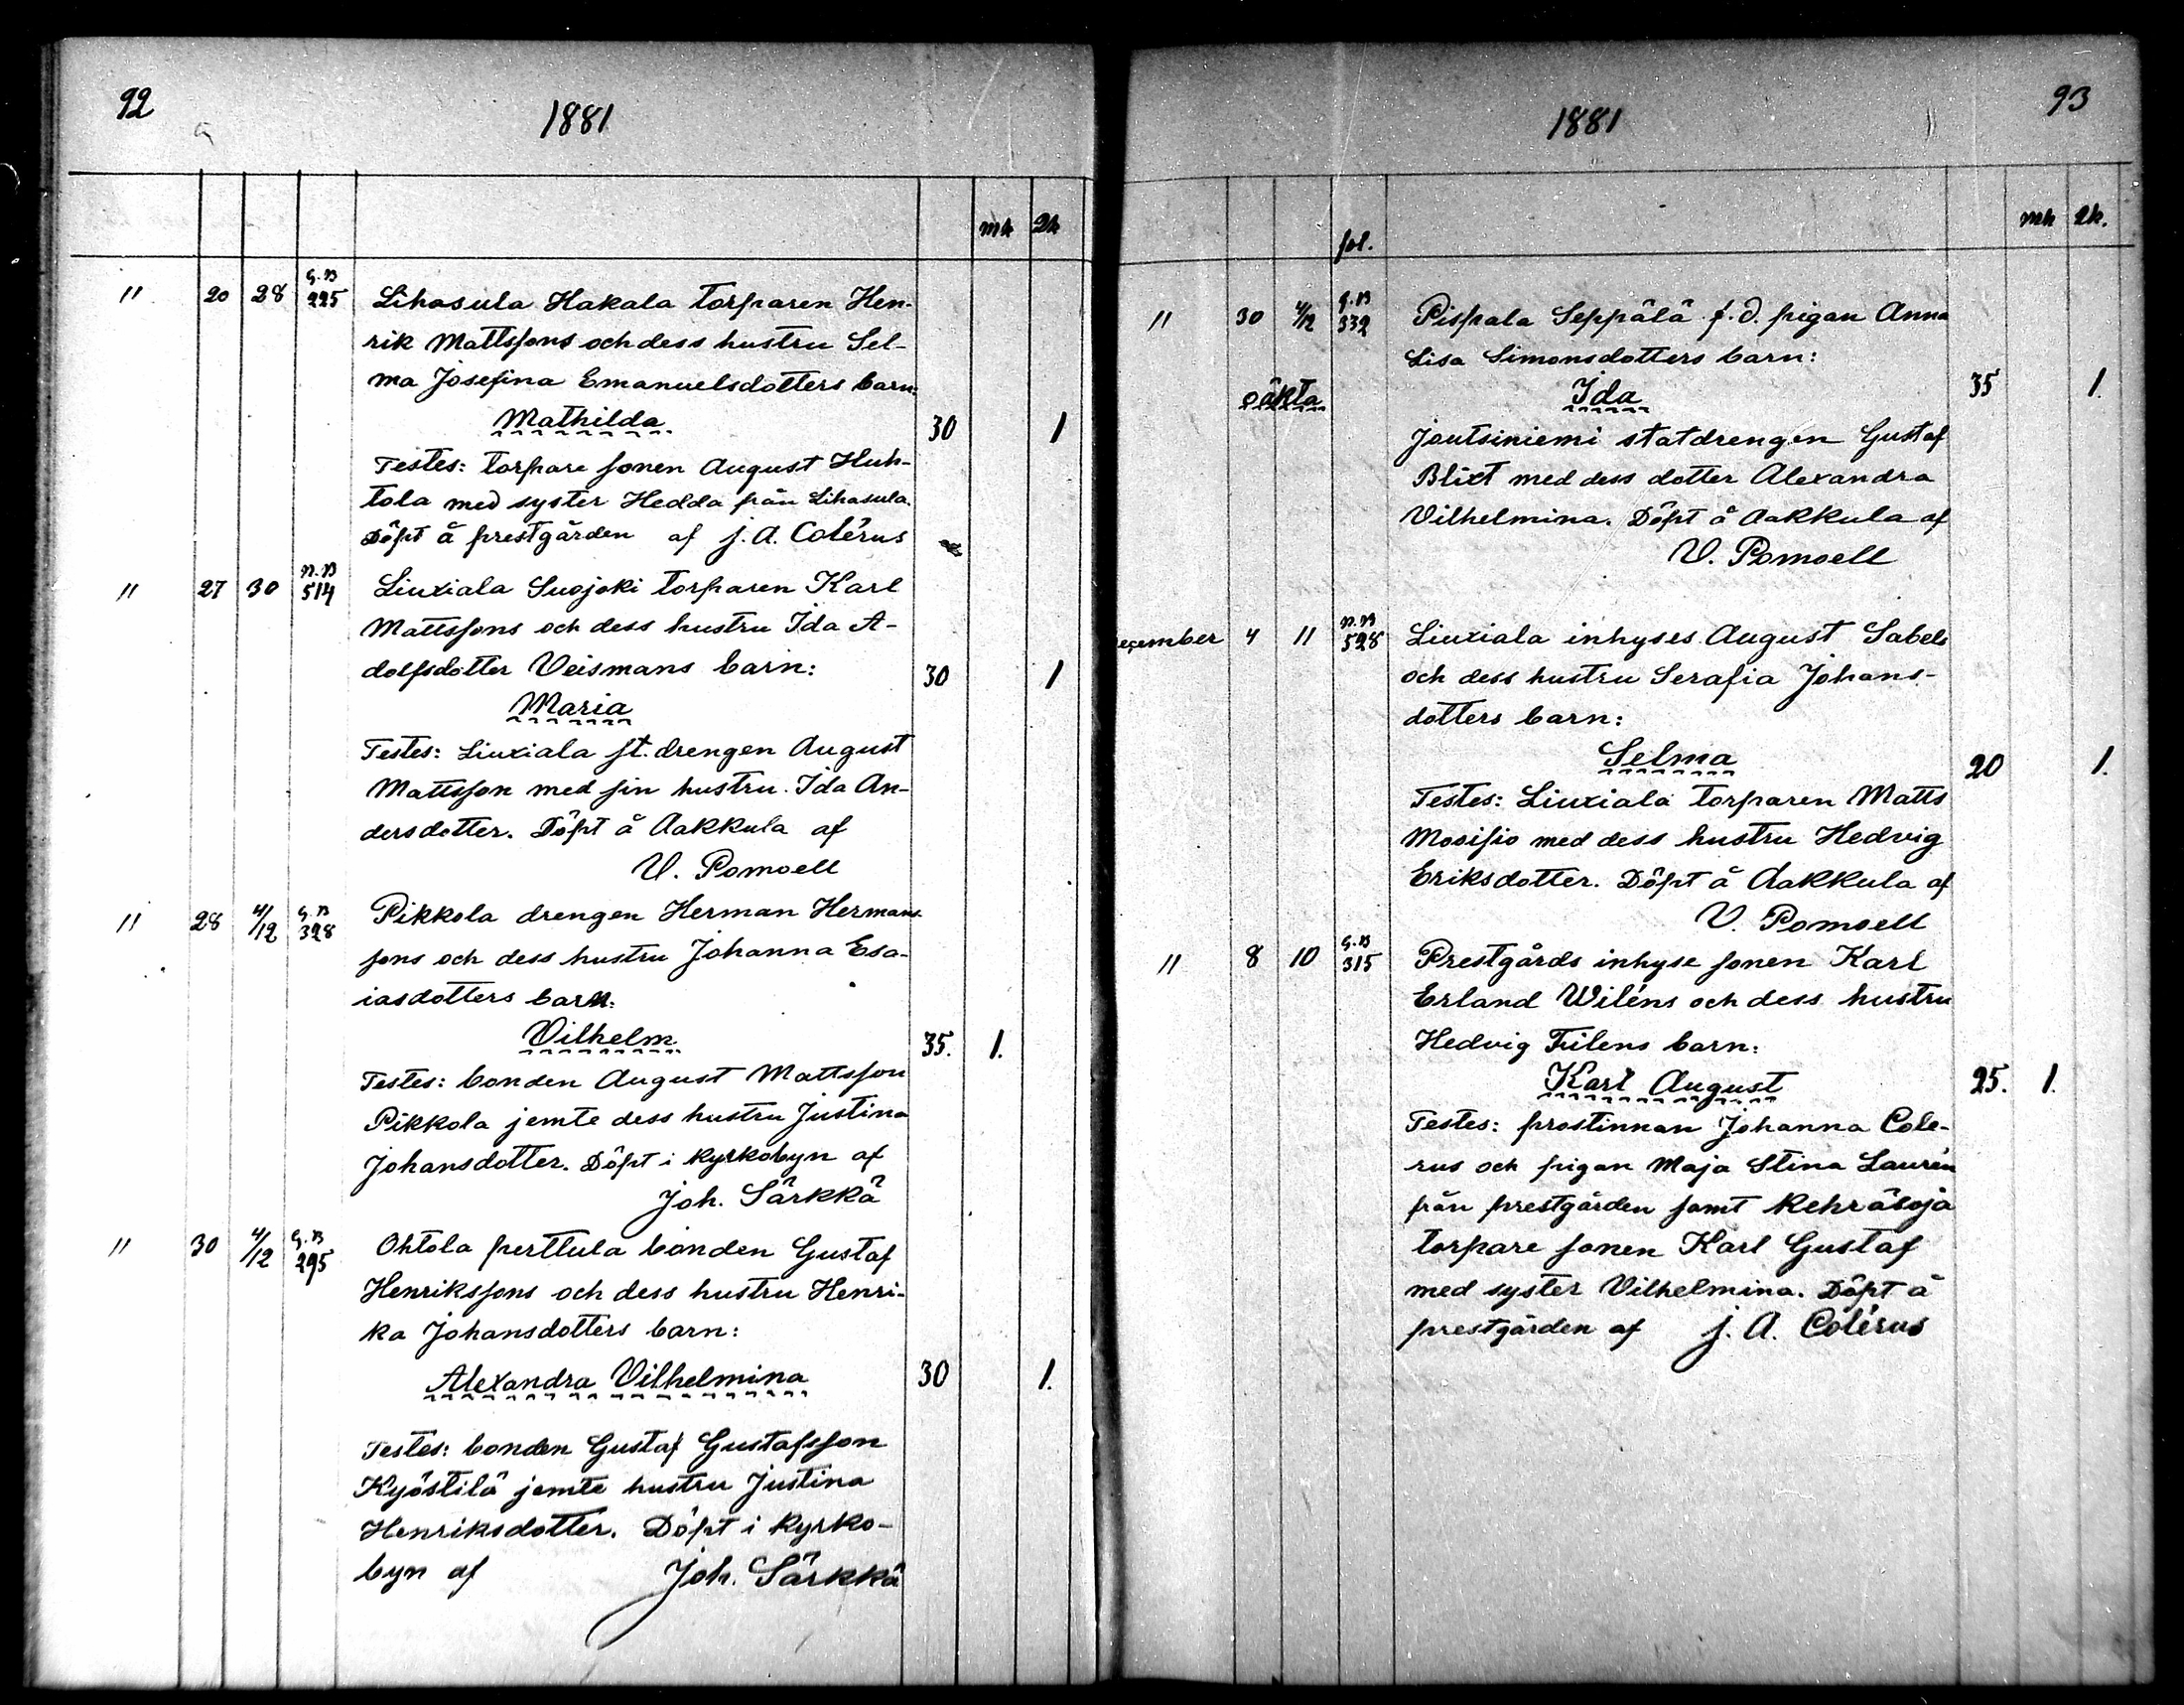 92
1881
mk
Qk
" 20 28 G.B 225 Lihasula Hakala torparen Hen-
rik Mattssons och dess hustru Sel-
ma Josefina Emanuelsdotters barn:
Mathilda 30 1
Testes: torpare sonen August Huh-
tola med syster Hedda från Lihasula.
Döpt å prestgården af J. A. Colérus
" 27 30 N.B 514 Liuxiala Suojoki torparen Karl
Mattssons och dess hustru Ida A-
dolfsdotter Veismans barn: 30 1
Maria
Testes: Liuxiala st. drengen August
Mattsson med sin hustru Ida An-
dersdotter. Döpt å Aakkula af
V. Pomoell
" 28 4/12 G.B 328 Pikkola drengen Herman Hermans-
sons och dess hustru Johanna Esa-
iasdotters barn:
Vilhelm 35. 1.
Testes: bonden August Mattsson
Pikkola jemte dess hustru Justina
Johansdotter. Döpt i kyrkobyn af
Joh. Särkkä
" 30 4/12 G.B 295 Ohtola perttula bonden Gustaf
Henrikssons och dess hustru Henri-
ka Johansdotters barn:
Alexandra Vilhelmina 30 1.
Testes: bonden Gustaf Gustafsson
Kyöstilä jemte hustru Justina
Henriksdotter. Döpt i kyrko-
byn af Joh. Särkkä
1881
93
fol.
mk
Qk.
" 30 4/12 G.B 332 Pispala Seppälä f.d. pigan Anna
Lisa Simonsdotters barn:
oäkta Ida 35 1.
Joutsiniemi statdrengen Gustaf
Blixt med dess dotter Alexandra
Vilhelmina. Döpt å Aakkula af
V. Pomoell
ecember 4 11 N.B 528 Liuxiala inhyses August Sabels
och dess hustru Serafia Johans-
dotters barn:
Selma 20 1.
Testes: Liuxiala torparen Matts
Moosisio med dess hustru Hedvig
Eriksdotter. Döpt å Aakkula af
V. Pomoell
" 8 10 G.B 315 Prestgårds inhyse sonen Karl
Erland Wiléns och dess hustru
Hedvig Filens barn:
Karl August 25. 1.
Testes: prostinnan Johanna Cole-
rus och pigan Maja Stina Laurén
från prestgården samt Kehräsoja
torpare sonen Karl Gustaf
med syster Vilhelmina. Döpt å
prestgården af J. A. Colérus